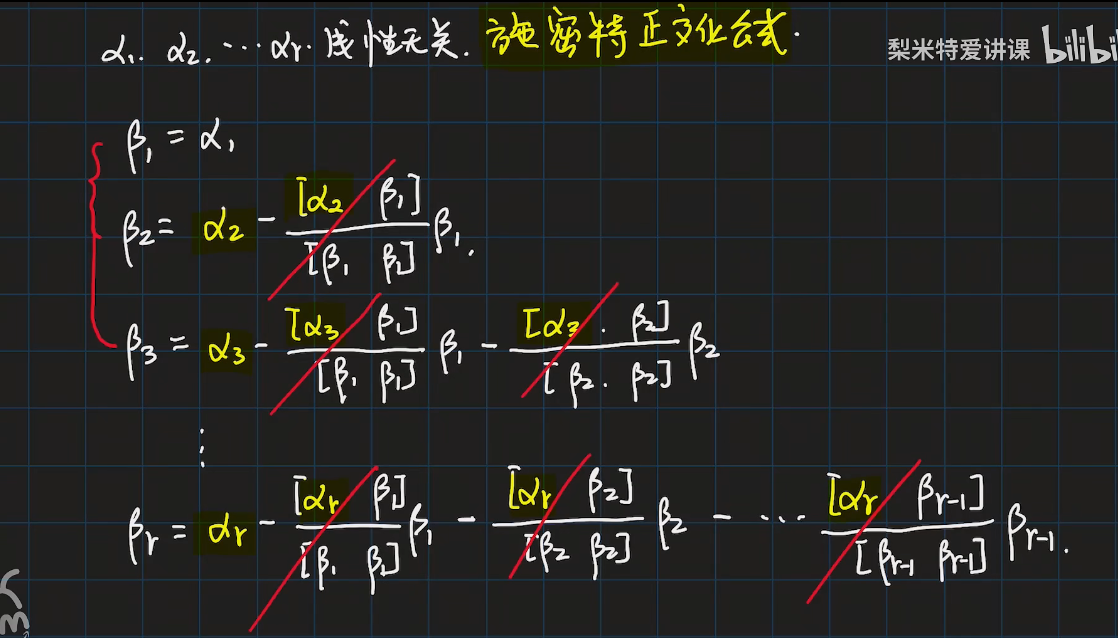 α₁. α₂. ⋯ αᵣ. 线性无关. 施密特正交化公式.
梨米特爱讲课 bilibili
β₁ = α₁
β₂ = α₂ - [α₂ β₁]/[β₁ β₁] β₁.
β₃ = α₃ - [α₃ β₁]/[β₁ β₁] β₁ - [α₃. β₂]/[β₂. β₂] β₂
⋮
βᵣ = αᵣ - [αᵣ β₁]/[β₁ β₁] β₁ - [αᵣ β₂]/[β₂ β₂] β₂ - ⋯ [αᵣ βᵣ₋₁]/[βᵣ₋₁ βᵣ₋₁] βᵣ₋₁.